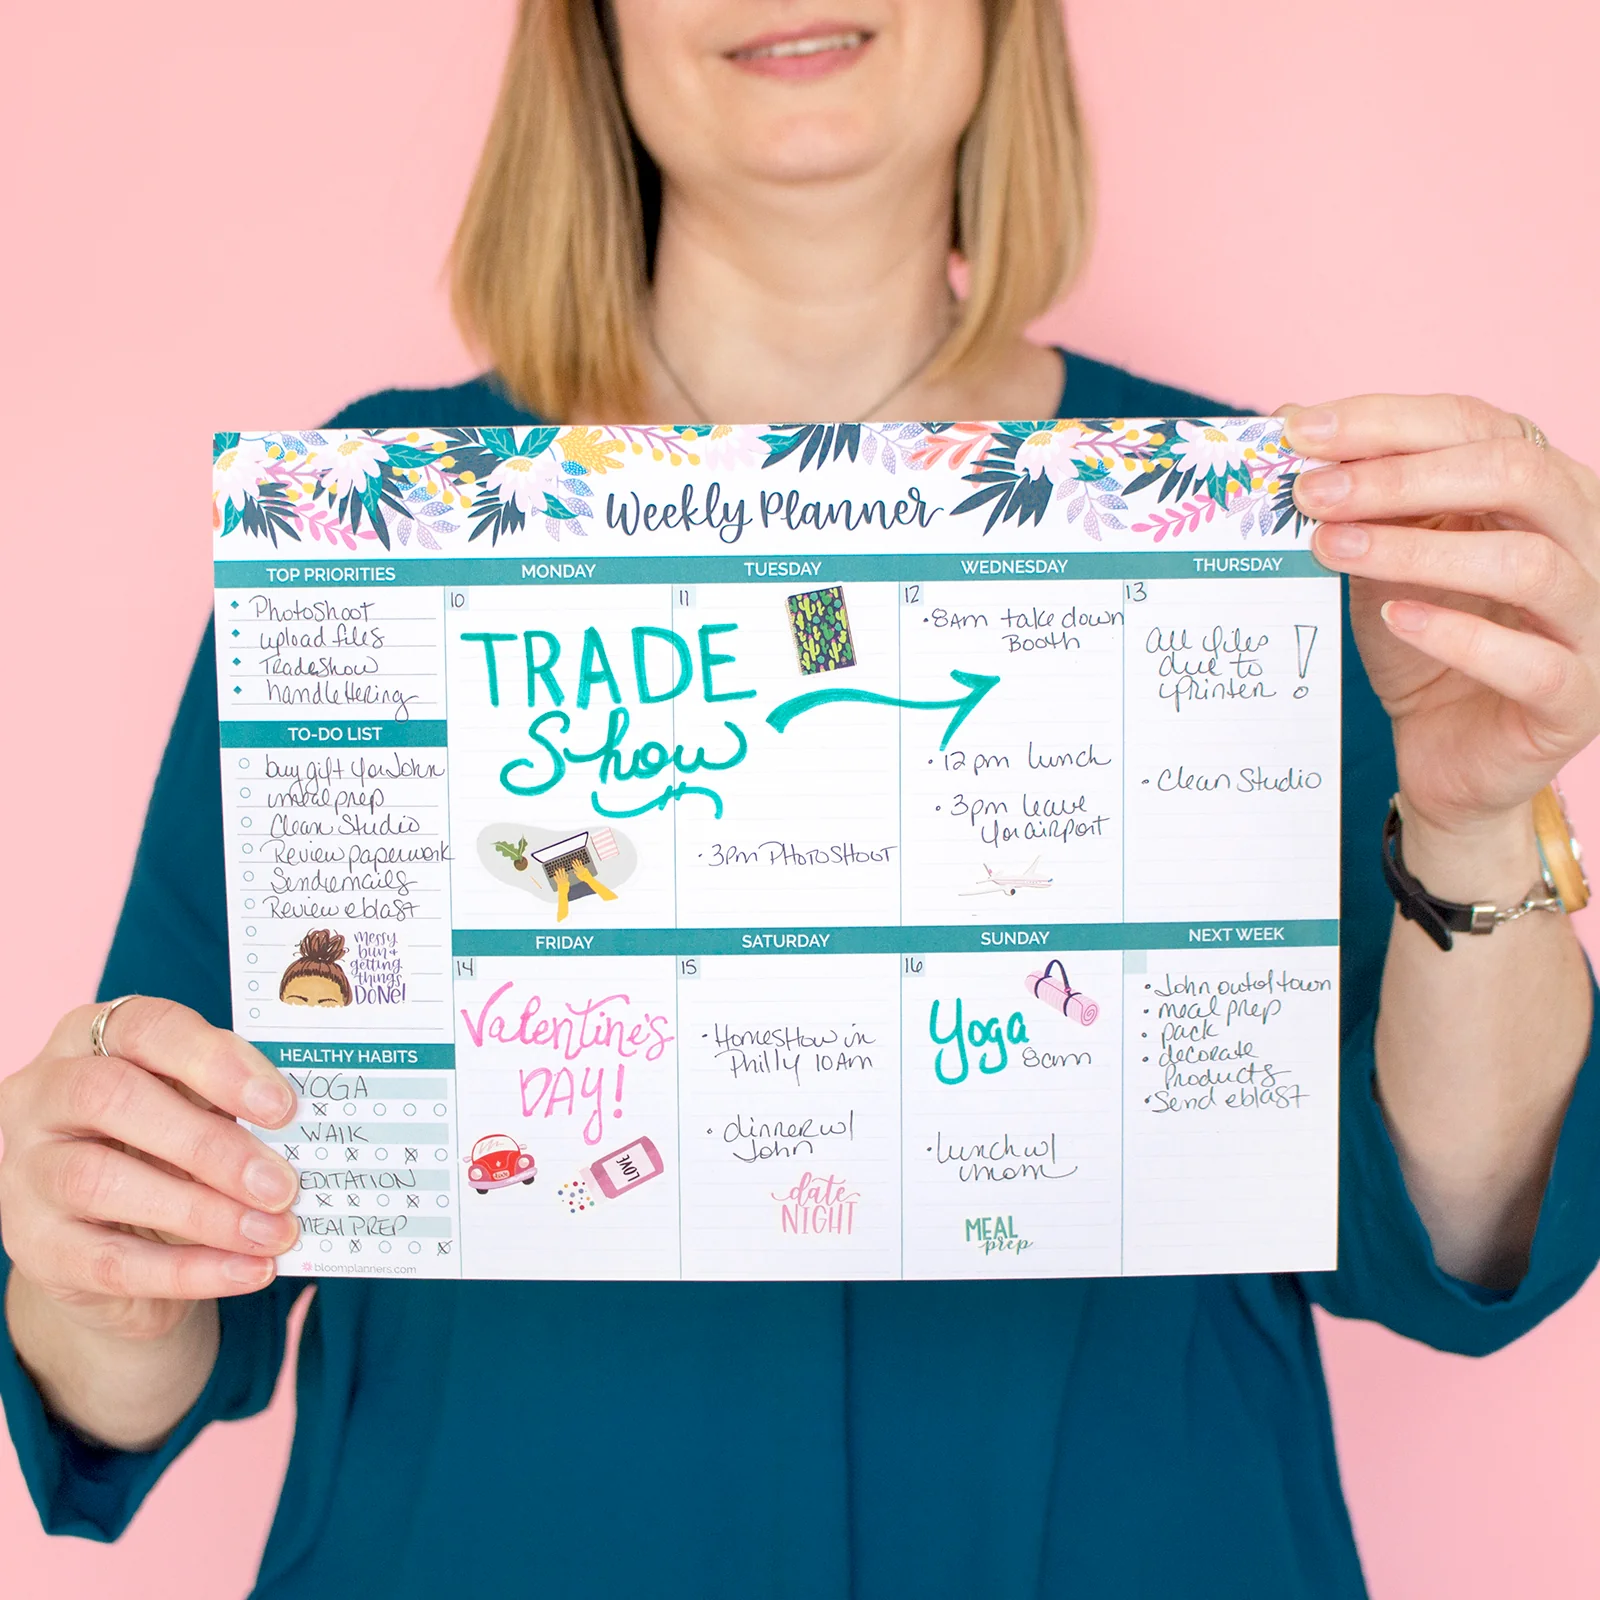 Weekly Planner
TOP PRIORITIES
PhotoShoot
upload files
Tradeshow
handlettering
TO-DO LIST
buy gift for John
meal prep
Clean Studio
Review paperwork
Send emails
Review eblast
messy
bun +
getting
things
DONE!
HEALTHY HABITS
YOGA
WALK
EDITATION
MEAL PREP
bloomplanners.com
MONDAY
10
TRADE
Show
TUESDAY
11
3pm PHOTOSHOOT
WEDNESDAY
12
8AM take down
Booth
12pm lunch
3pm leave
for airport
THURSDAY
13
All files
due to
printer !
Clean Studio
FRIDAY
14
Valentine's
DAY!
LOVE
SATURDAY
15
HomeSHow in
Philly 10AM
dinner w/
John
date
NIGHT
SUNDAY
16
Yoga
8am
lunch w/
mom
MEAL
prep
NEXT WEEK
John out of town
meal prep
pack
decorate
Products
Send eblast